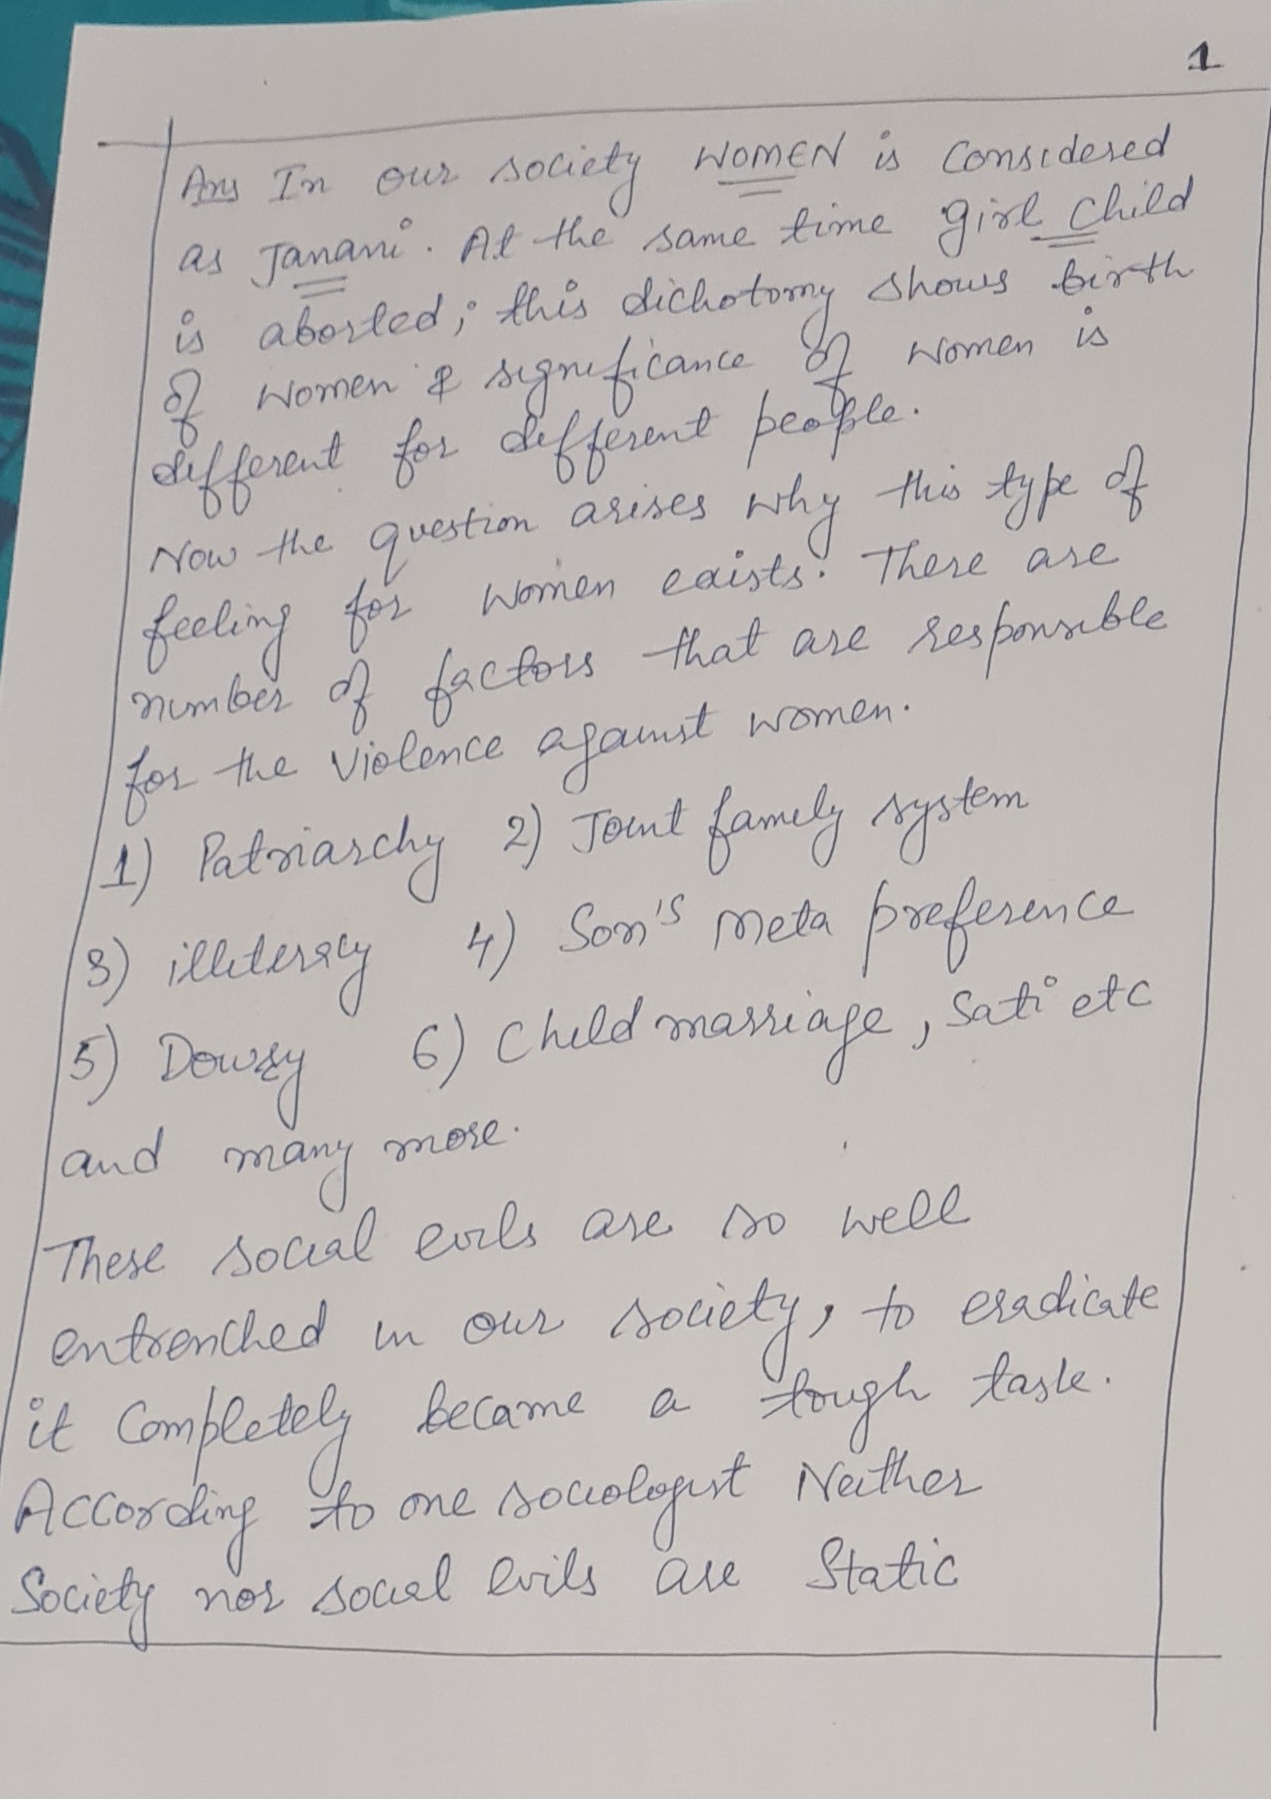 1
Ans In our society WOMEN is considered
as Janani. At the same time girl child
is aborted; this dichotomy shows birth
of women & significance of women is
different for different people.
Now the question arises why this type of
feeling for women exists. There are
number of factors that are responsible
for the violence against women.
1) Patriarchy 2) Joint family system
3) illiteracy 4) Son's meta preference
5) Dowry 6) Child marriage, Sati etc
and many more.
These social evils are so well
entrenched in our society, to eradicate
it completely became a tough task.
According to one sociologist Neither
Society nor social evils are Static